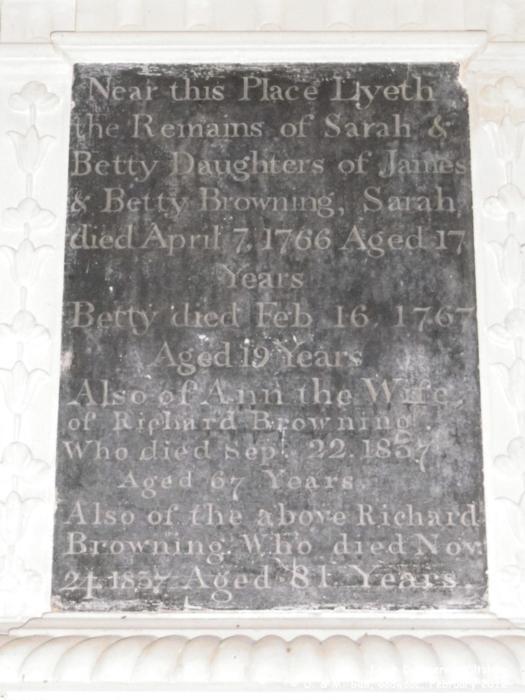 Near this Place Lyeth
the Remains of Sarah &
Betty Daughters of James
& Betty Browning, Sarah
died April 7, 1766 Aged 17
Years
Betty died Feb 16. 1767
Aged 19 Years
Also of Ann the Wife
of Richard Browning.
Who died Sep. 22. 1837
Aged 67 Years.
Also of the above Richard
Browning. Who died Nov.
24. 1837 Aged 81 Years.
February